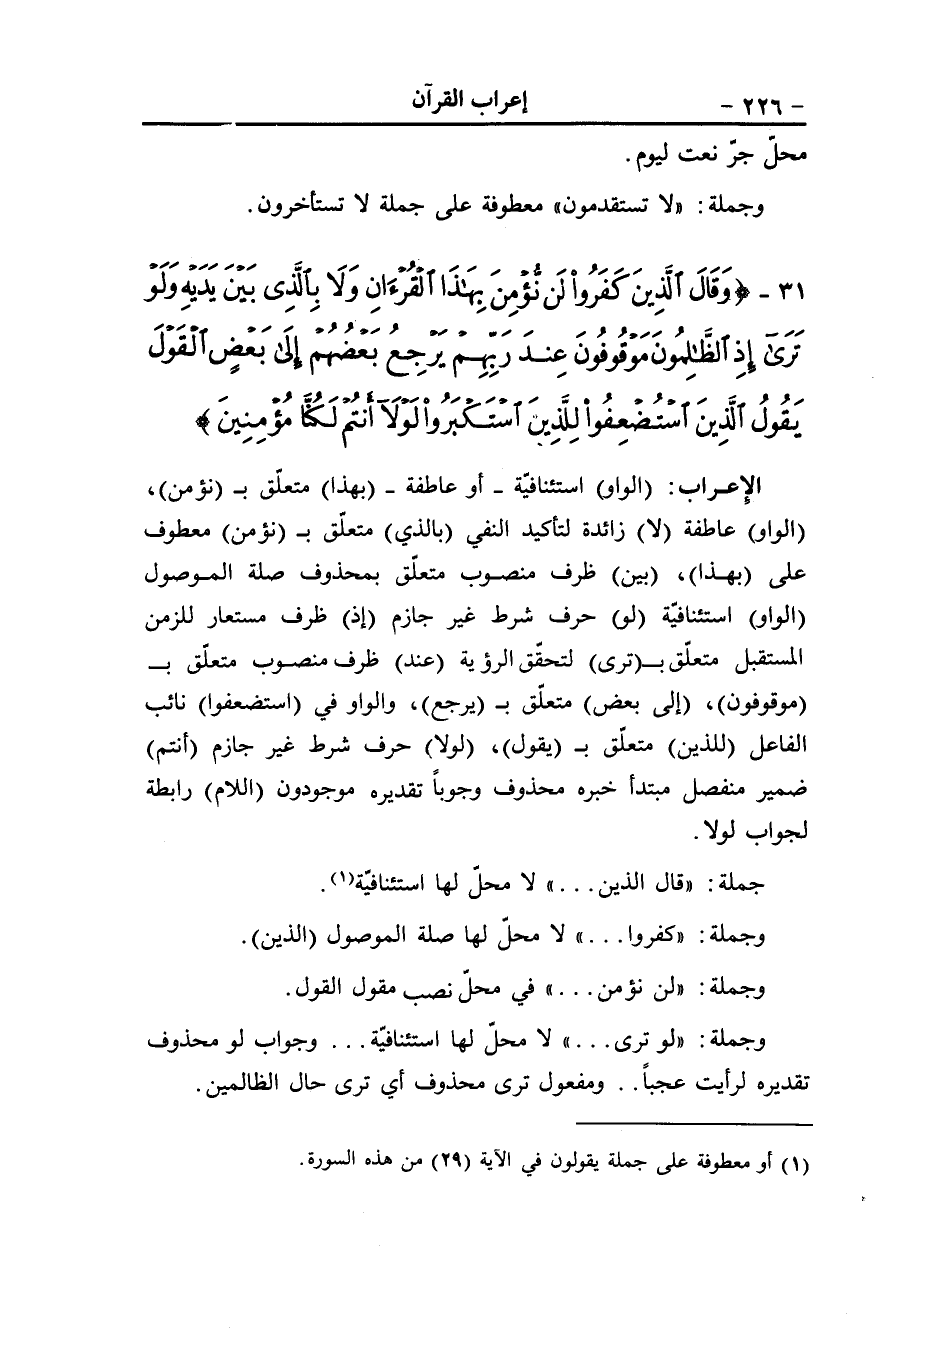 - ٢٢٦ - إعراب القرآن
محلّ جرّ نعت ليوم.
وجملة: «لا تستقدمون» معطوفة على جملة لا تستأخرون.
٣١ - ﴿وَقَالَ ٱلَّذِينَ كَفَرُواْ لَن نُّؤْمِنَ بِهَٰذَا ٱلْقُرْءَانِ وَلَا بِٱلَّذِى بَيْنَ يَدَيْهِ وَلَوْ
تَرَىٰٓ إِذِ ٱلظَّٰلِمُونَ مَوْقُوفُونَ عِندَ رَبِّهِمْ يَرْجِعُ بَعْضُهُمْ إِلَىٰ بَعْضٍ ٱلْقَوْلَ
يَقُولُ ٱلَّذِينَ ٱسْتُضْعِفُواْ لِلَّذِينَ ٱسْتَكْبَرُواْ لَوْلَآ أَنتُمْ لَكُنَّا مُؤْمِنِينَ﴾
الإعراب: (الواو) استئنافيّة - أو عاطفة - (بهذا) متعلّق بـ (نؤمن)،
(الواو) عاطفة (لا) زائدة لتأكيد النفي (بالذي) متعلّق بـ (نؤمن) معطوف
على (بهذا)، (بين) ظرف منصوب متعلّق بمحذوف صلة الموصول
(الواو) استئنافيّة (لو) حرف شرط غير جازم (إذ) ظرف مستعار للزمن
المستقبل متعلّق بـ(ترى) لتحقّق الرؤية (عند) ظرف منصوب متعلّق بـ
(موقوفون)، (إلى بعض) متعلّق بـ (يرجع)، والواو في (استضعفوا) نائب
الفاعل (للذين) متعلّق بـ (يقول)، (لولا) حرف شرط غير جازم (أنتم)
ضمير منفصل مبتدأ خبره محذوف وجوباً تقديره موجودون (اللام) رابطة
لجواب لولا.
جملة: «قال الذين...» لا محلّ لها استئنافيّة(١).
وجملة: «كفروا...» لا محلّ لها صلة الموصول (الذين).
وجملة: «لن نؤمن...» في محلّ نصب مقول القول.
وجملة: «لو ترى...» لا محلّ لها استئنافيّة... وجواب لو محذوف
تقديره لرأيت عجباً.. ومفعول ترى محذوف أي ترى حال الظالمين.
(١) أو معطوفة على جملة يقولون في الآية (٢٩) من هذه السورة.